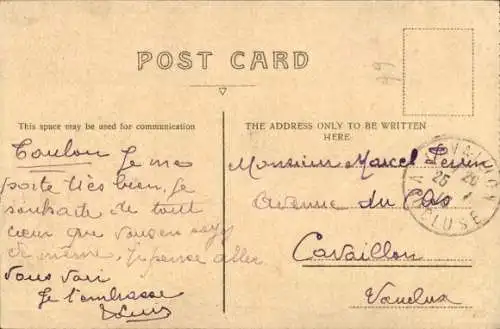 POST CARD
99
This space may be used for communication
THE ADDRESS ONLY TO BE WRITTEN
HERE
Toulon Je me
porte très bien, Je
souhaite de tout
cœur que vous en soy
de même. Je pense aller
vous voir
Je t'embrasse
Louis
Monsieur Marcel Perrin
Avenue du Clos
Cavaillon
Vaucluse
CAVAILLON
VAUCLUSE